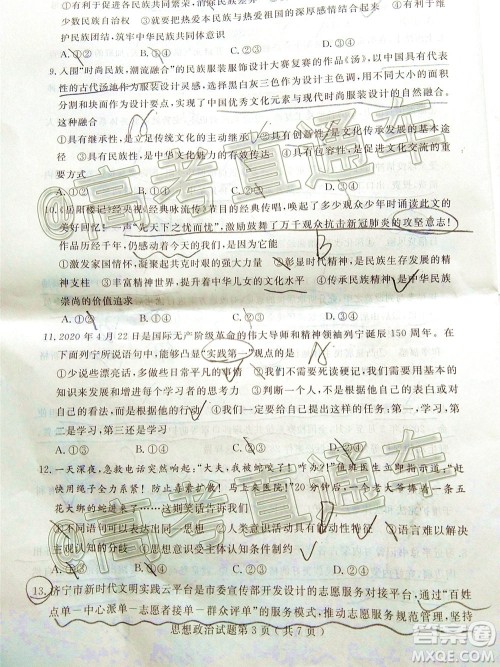 ①有利于促进各民族共同团结奋斗、共同
数民族自治权　③有利于坚持爱国和热爱祖国的深厚感情结合　④有利于
护民族团结，筑牢中华民族共同体意识
A.①②　B.①④　C.②③　D.③④
9.入围“时尚民族，潮流融合”的民族服装服饰设计大赛复赛的作品《汤》，以中国具有代表
性的古代汤池作为设计的灵感来源，选择黑白灰三种色彩作为整体设计的主要颜色，整个
作品设计要突出实现了中国优秀文化元素与现代时尚服装设计的自然融合。
这种融合
①具有继承性，是立足传统文化的主动继承　②具有创新性，是文化传承发展的基本途
径　③具有民族性，是中华文化具有强大凝聚力的表现　④具有包容性，是文化发展的重
要方式
A.①②　B.①③　C.②④　D.③④
10.《岳阳楼记》经央视《经典咏流传》节目的经典传唱，唤起了多少观众少年时诵读此文的
美好回忆！一声“先天下之忧而忧”，激励鼓舞了万千观众抗击新冠肺炎的攻坚意志！
作品历经千年，仍感动着今天的我们，是因为它能
①激发家国情怀，建构中华文化兴盛的强大力量　②彰显时代精神，是民族生存发展的精
神支柱　③丰富精神世界，提升中华儿女的文化水平　④传承民族精神，契合中华民族
崇尚的价值追求
A.①③　B.①④　C.②③　D.②④
11.2020 年 4 月 22 日是国际无产阶级革命的伟大导师和精神领袖列宁诞辰 150 周年。在
下面列宁所说语句中，能够凸显“实践第一”观点的是
①少说些漂亮话，多做些日常平凡的事情　②我们不需要死读硬记，我们需要用基本
的知识来发展和增进每个学习者的思考力　③判断一个人，不是根据他自己的表白或对
自己的看法，而是根据他的行动　④我们一定要给自己提出这样的任务：第一是学习，第
二是学习，第三还是学习
A.①②　B.①③　C.②④　D.③④
12.一天深夜，急救电话突然响起：“大夫，我被蛇咬了！”值班医生迅即回应：“别慌！赶
快用绳子全力系紧！防止毒素扩散！马上来医院！”20分钟后，一个老大爷捧着一条五
花大绑的蛇进来了……这则笑话告诉我们
①不同语句可以有不同的内容　②人类意识活动具有能动性特征　③语言难以解决
认知的分歧　④思想意识受主体认知条件制约
A.①②　B.①③　C.②④　D.③④
13.济宁市新时代文明实践云平台是市委宣传部开发设计的志愿服务对接平台，通过“百姓
点单—中心派单—志愿者接单—群众评单”的服务模式，推动志愿服务规范管理，坚持
思想政治试题第3页（共7页）
高考直通车
A
B
A
答案圈
MXQE.COM